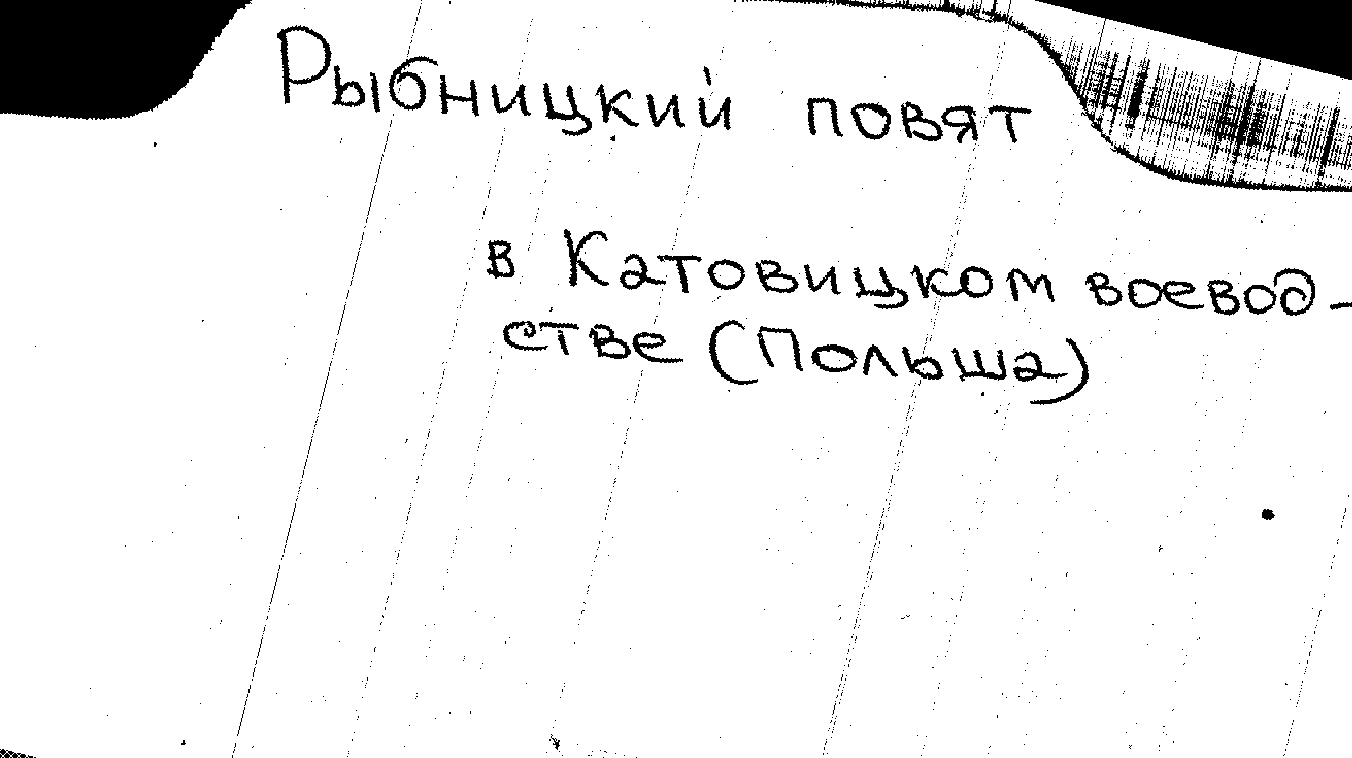 Рыбницкий повят
в Катовицком воевод-
стве (Польша)